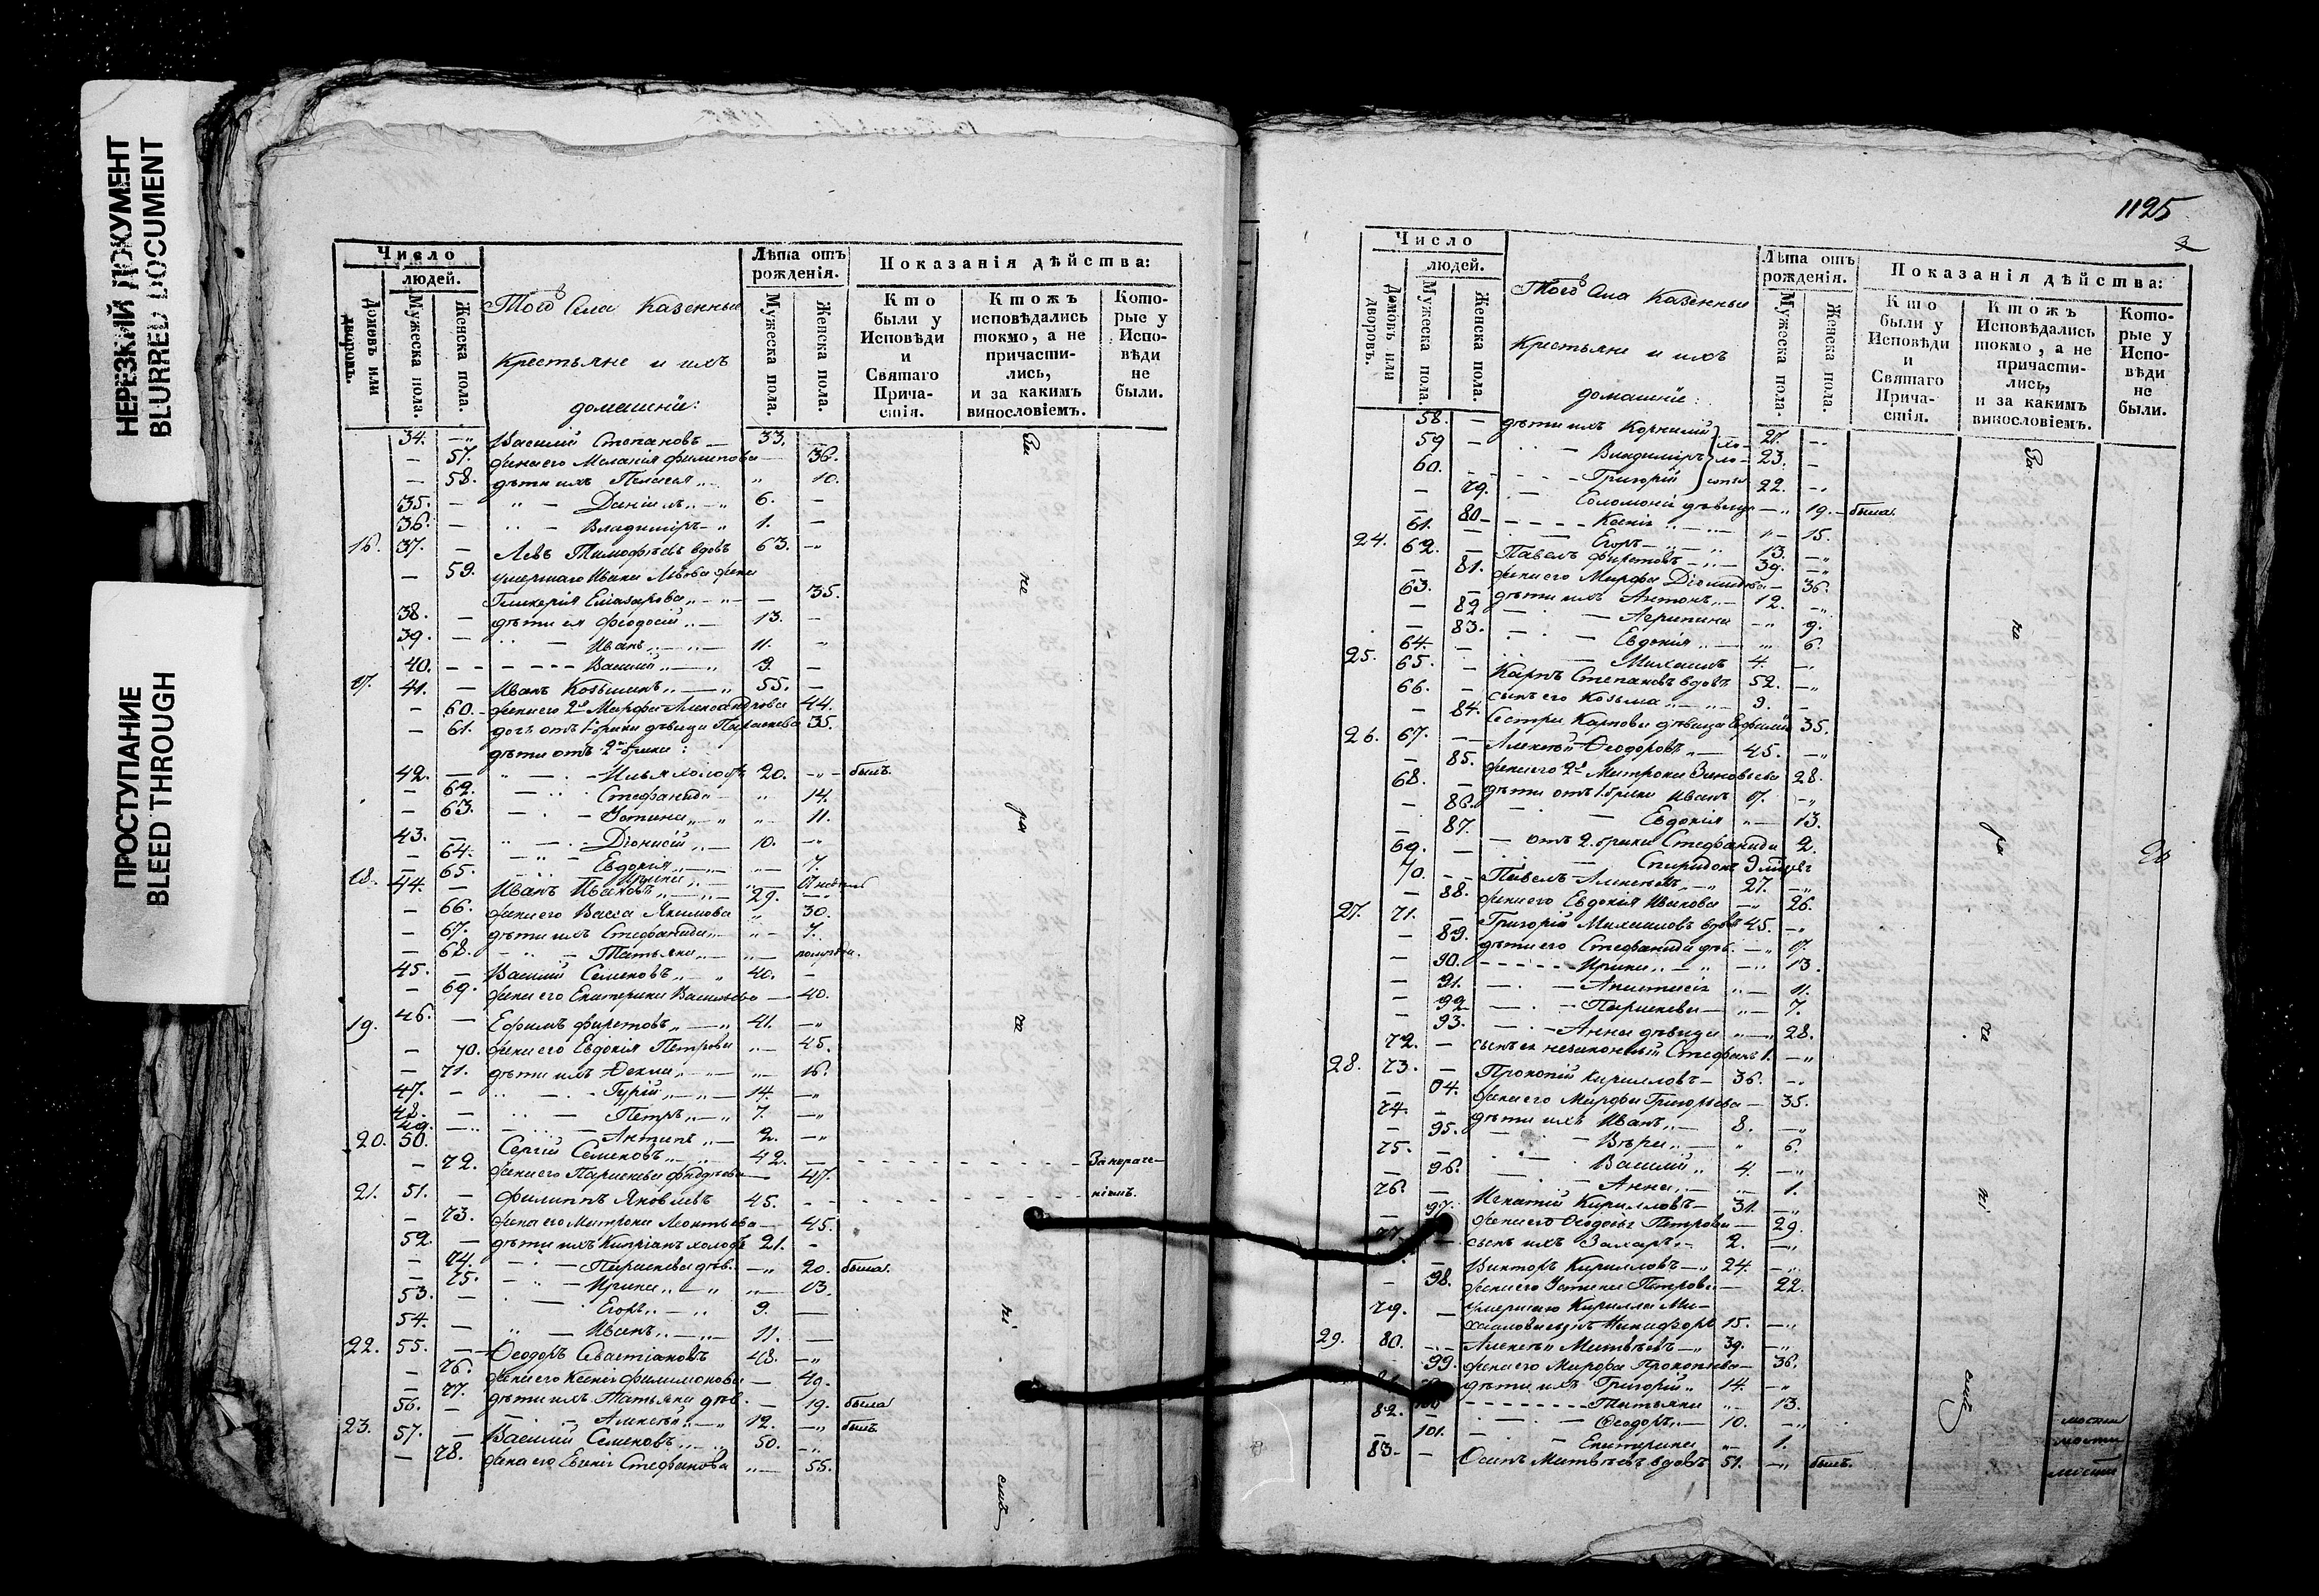 НЕРЕЗКИЙ ДОКУМЕНТ
BLURRED DOCUMENT
ПРОСТУПАНИЕ
BLEED THROUGH
Число
людей.
Домовъ или дворовъ.
Мужеска пола.
Женска пола.
Того Села Казенные
Крестьяне и ихъ
домашніе:
Лѣта отъ рожденія.
Мужеска пола.
Женска пола.
Показанія дѣйства:
Кто были у Исповѣди и Святаго Причастія.
Ктожъ исповѣдались токмо, а не причастились, и за какимъ винословіемъ.
Которые у Исповѣди не были.
34. Василій Степановъ 33.
57. жена его Меланія Филипова 36.
58. дѣти ихъ Пелагея 10.
35. Даніилъ 6.
36. Владиміръ 1.
16. 37. Левъ Тимофѣевъ вдовъ 63.
59. умершаго Ивана Львова жена
Гликерія Елазарова 35.
38. дѣти ея Феодосій 13.
39. Иванъ 11.
40. Василій 9.
17. 41. Иванъ Козьминъ 55.
60. жена его 2я Марфа Александрова 44.
61. дочь отъ 1 брака дѣвица Параскева 35.
дѣти отъ 2 брака:
42. Илья холостъ 20. былъ.
62. Стефанида 14.
63. Устинья 11.
43. Діонисій 10.
64. Евдокія 7.
65. Ирина
18. 44. Иванъ Ивановъ 29.
66. жена его Васса Якимова 30.
67. дѣти ихъ Стефанида 7.
68. Татьяна
45. Василій Семеновъ 40.
69. жена его Екатерина Васильева 40.
19. 46. Ефимъ Фирстовъ 41.
70. жена его Евдокія Петрова 45.
71. дѣти ихъ Ѳекла 16.
47. Гурій 14.
48. Петръ 7.
49. Антипъ 2.
20. 50. Сергій Семеновъ 42.
72. жена его Параскева 47.
21. 51. Филиппъ Яковлевъ 45.
73. жена его Матрона Леонтьева 45.
52. дѣти ихъ Кипріанъ холостъ 21.
74. Параскева дѣв. 20. была.
75. Ирина 13.
53. Егоръ 9.
54. Иванъ 11.
22. 55. Ѳеодоръ Севастіановъ 48.
76. жена его Ксенія Филимонова 49.
77. дѣти ихъ Татьяна дѣв. 19. была
56. Алексѣй 12. былъ
23. 57. Василій Семеновъ 50.
78. жена его Евгенія Стефанова 55.
1125
Число
людей.
Домовъ или дворовъ.
Мужеска пола.
Женска пола.
Того Села Казенные
Крестьяне и ихъ
домашніе:
Лѣта отъ рожденія.
Мужеска пола.
Женска пола.
Показанія дѣйства:
Кто были у Исповѣди и Святаго Причастія.
Ктожъ Исповѣдались токмо, а не причастились, и за какимъ винословіемъ.
Которые у Исповѣди не были.
58. дѣти ихъ Корнилій 27.
59. Владиміръ 23.
60. Григорій 22.
79. Соломонія дѣвица 19. была.
80. Ксенія 15.
61. Егоръ 13.
24. 62. Павелъ Фирстовъ 39.
81. жена его Марфа Діомидова 36.
63. дѣти ихъ Антонъ 12.
82. Агрипина 9.
83. Евдокія 6.
64. Михаилъ 4.
25. 65. Карпъ Степановъ вдовъ 52.
66. сынъ его Козьма 9.
84. Сестра Карпова дѣвица Евфимія 35.
26. 67. Алексѣй Ѳеодоровъ 45.
85. жена его 2я Матрона Зиновьева 28.
68. дѣти отъ 1. брака Иванъ 17.
86. Евдокія 13.
87. отъ 2. брака Стефанида 2.
69. Спиридонъ
70. Павелъ Алексѣевъ 27.
88. жена его Евдокія Иванова 26.
27. 71. Григорій Михаиловъ вдовъ 45.
89. дѣти его Стефанида дѣв. 17.
90. Ирина 13.
91. Анастасія 11.
92. Параскева 7.
93. Анна дѣвица 28.
72. сынъ ея незаконный Стефанъ 1.
28. 73. Прокопій Кирилловъ 36.
94. жена его Марфа Григорьева 35.
74. дѣти ихъ Иванъ 8.
95. Вѣра 6.
75. Василій 4.
96. Анна 1.
76. Игнатій Кирилловъ 31.
97. жена его Ѳеодосья Петрова 29.
77. сынъ ихъ Захаръ 2.
Викторъ Кирилловъ 24.
98. жена его Устинья Петрова 22.
79. умершаго Кирилла Ми-
хаилова сынъ Никифоръ 15.
29. 80. Алексѣй Матвѣевъ 39.
99. жена его Марфа Прокопьева 36.
дѣти ихъ Григорій 14.
100 Татьяна 13.
82. Ѳеодоръ 10.
101. Екатерина 1.
83. Осипъ Матвѣевъ вдовъ 51. былъ.